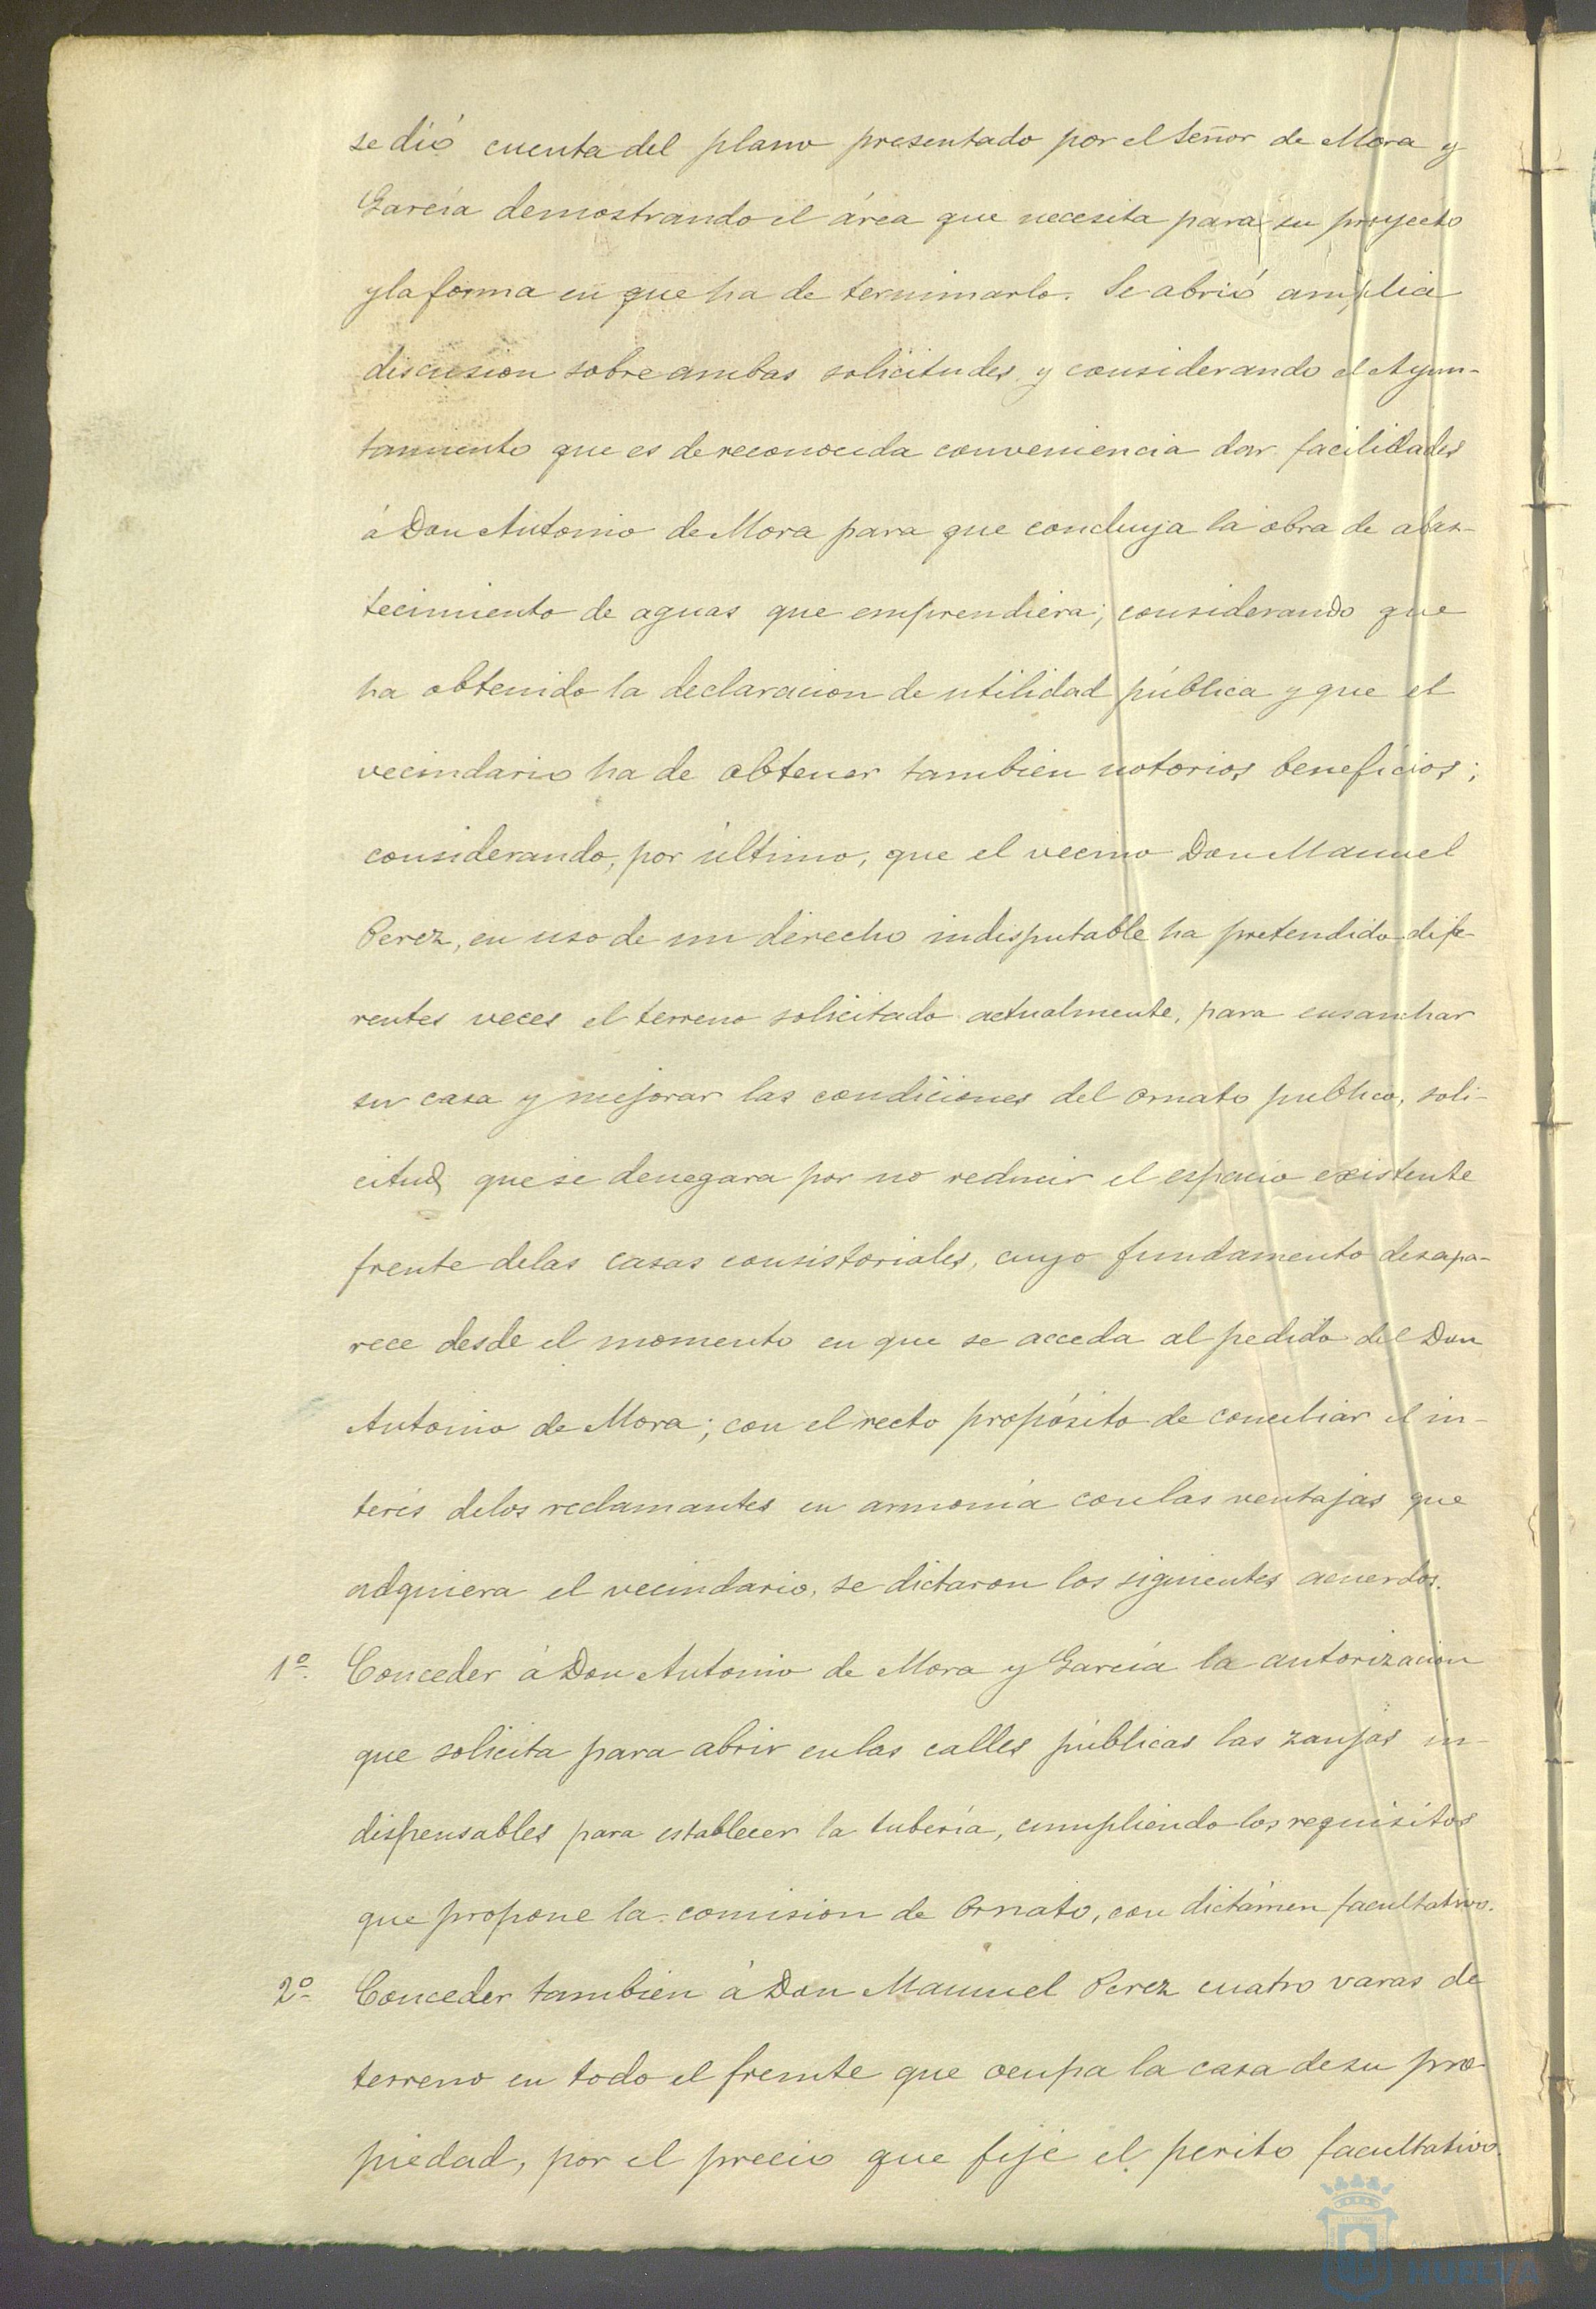 se dió cuenta del plano presentado por el Señor de Mora y
García demostrando el área que necesita para su proyecto
y la forma en que ha de terminarlo. Se abrió amplia
discusion sobre ambas solicitudes y considerando el Ayun-
tamiento que es de reconocida conveniencia dar facilidades
á Don Antonio de Mora para que concluya la obra de abas-
tecimiento de aguas que emprendiera; considerando que
ha obtenido la declaracion de utilidad pública y que el
vecindario ha de obtener tambien notorios beneficios;
considerando, por último, que el vecino Don Manuel
Perez, en uso de un derecho indisputable ha pretendido dife-
rentes veces el terreno solicitado actualmente, para ensanchar
su casa y mejorar las condiciones del ornato publico, soli-
citud que se denegara por no reducir el espacio existente
frente de las casas consistoriales, cuyo fundamento desapa-
rece desde el momento en que se acceda al pedido del Don
Antonio de Mora; con el recto propósito de conciliar el in-
terés de los reclamantes en armonía con las ventajas que
adquiera el vecindario, se dictaron los siguientes acuerdos.
1º. Conceder á Don Antonio de Mora y García la autorizacion
que solicita para abrir en las calles públicas las zanjas in-
dispensables para establecer la tubería, cumpliendo los requisitos
que propone la comision de Ornato, con dictámen facultativo.
2º Conceder tambien á Don Manuel Perez cuatro varas de
terreno en todo el frente que ocupa la casa de su pro-
piedad, por el precio que fije el perito facultativo.
HUELVA